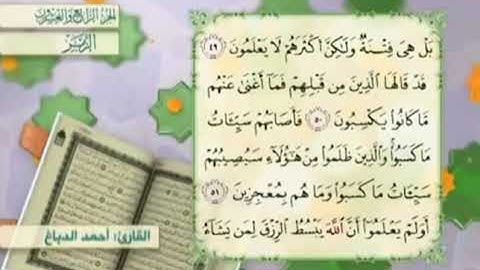 الجزء الرابع والعشرون
الزمر
بَلْ هِىَ فِتْنَةٌ وَلَٰكِنَّ أَكْثَرَهُمْ لَا يَعْلَمُونَ ٤٩
قَدْ قَالَهَا الَّذِينَ مِن قَبْلِهِمْ فَمَا أَغْنَىٰ عَنْهُم
مَّا كَانُوا۟ يَكْسِبُونَ ٥٠ فَأَصَابَهُمْ سَيِّـَٔاتُ
مَا كَسَبُوا۟ وَالَّذِينَ ظَلَمُوا۟ مِنْ هَٰٓؤُلَآءِ سَيُصِيبُهُمْ
سَيِّـَٔاتُ مَا كَسَبُوا۟ وَمَا هُم بِمُعْجِزِينَ ٥١
أَوَلَمْ يَعْلَمُوٓا۟ أَنَّ اللَّهَ يَبْسُطُ الرِّزْقَ لِمَن يَشَآءُ
القارئ: أحمد الدباغ